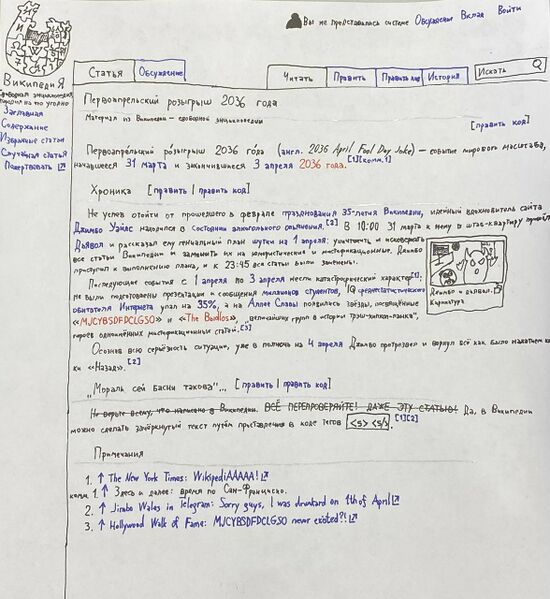 Вы не представились системе Обсуждение Вклад Войти
Википедия
Свободная энциклопедия
Заглавная
Содержание
Избранные статьи
Случайная статья
Пожертвовать
Статья Обсуждение Читать Править Править код История Искать
Первоапрельский розыгрыш 2036 года
Материал из Википедии – свободной энциклопедии
[править код]
Первоапре́льский ро́зыгрыш 2036 го́да (англ. 2036 April Fool Day Joke) – событие мирового масштаба,
начавшееся 31 марта и закончившееся 3 апреля 2036 года.[1][комм.1]
Хроника [править | править код]
Не успев отойти от прошедшего в феврале празднования 35-летия Википедии, идейный вдохновитель сайта
Джимбо Уэйлс находился в состоянии алкогольного опьянения.[2] В 10:00 31 марта к нему в штаб-квартиру пришёл
Дьявол и рассказал ему гениальный план шутки на 1 апреля: уничтожить и исковеркать
все статьи Википедии и заменить их на юмористические и мистификационные. Джимбо
приступил к выполнению плана, и к 23:45 все статьи были заменены.
Джимбо и дьявол.
Карикатура
Последующие события с 1 апреля по 3 апреля несли катастрофический характер[1]:
не были подготовлены презентации и сообщения миллионов студентов, IQ среднестатистического
обитателя Интернета упал на 35%, а на Аллее Славы появились звёзды, посвящённые
«MJCYBSDFDCLGSO» и «The Buidlos», "величайших групп в истории трэш-хип-хоп-панка",
героев одноимённых мистификационных статей.[3]
Осознав всю серьёзность ситуации, уже в полночь на 4 апреля Джимбо протрезвел и вернул всё как было нажатием кноп
ки «Назад».[2]
„Мораль сей басни такова"... [править | править код]
Не верьте всему, что написано в Википедии. ВСЁ ПЕРЕПРОВЕРЯЙТЕ! ДАЖЕ ЭТУ СТАТЬЮ! Да, в Википедии
можно сделать зачёркнутый текст путём проставления в коде тегов <s> </s>.[1][2]
Примечания
1. ↑ The New York Times: WikipediAAAAA!
комм. 1. ↑ Здесь и далее: время по Сан-Франциско.
2. ↑ Jimbo Wales in Telegram: Sorry guys, I was drunkard on 1th of April
3. ↑ Hollywood Walk of Fame: MJCYBSDFDCLGSO never existed?!